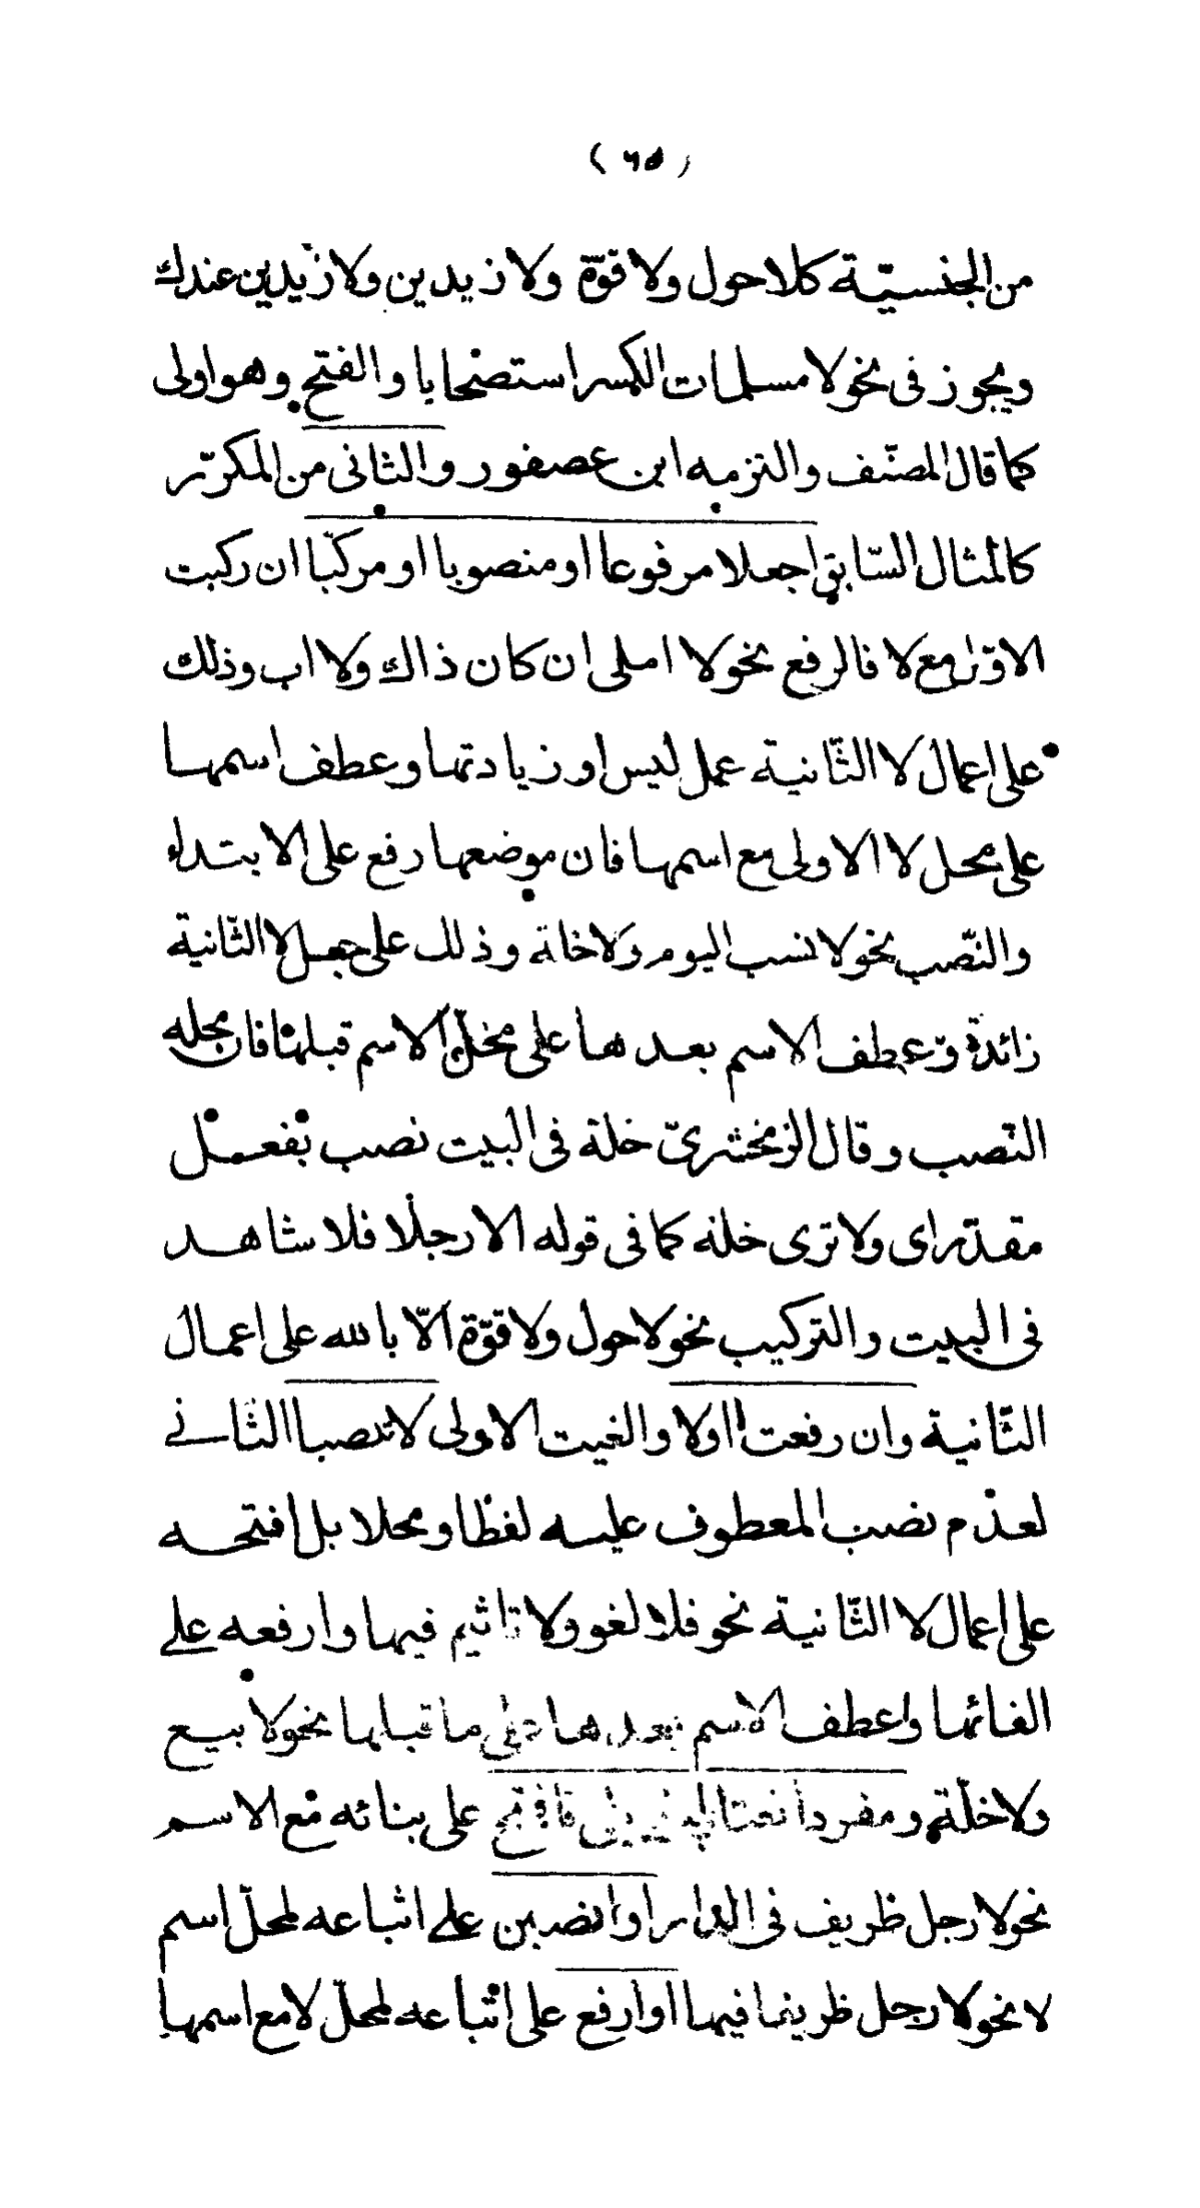 ( ٦٥ )
من الجنسيّة كلا حول ولا قوّة ولا زيدين ولا زيدين عندك
ويجوز فى نحو لا مسلمات الكسر استصحابا والفتح وهو اولى
كما قال المصنّف والتزمه ابن عصفور والثانى من المكرّر
كالمثال السّابق اجعلا مرفوعا او منصوبا او مركّبا ان ركبت
الاوّل مع لا فالرفع نحو لا ام لى ان كان ذاك ولا اب وذلك
على اعمال لا الثّانية عمل ليس او زيادتها وعطف اسمها
على محل لا الاولى مع اسمها فان موضعها رفع على الابتداء
والنّصب نحو لا نسب اليوم ولا خلة وذلك على جعل لا الثّانية
زائدة وعطف الاسم بعدها على محلّ الاسم قبلها فان محله
النّصب وقال الزمخشرىّ خلة فى البيت نصب بفعل
مقدّر اى ولا ترى خلة كما فى قوله الا رجلا فلا شاهد
فى البيت والتركيب نحو لا حول ولا قوّة الّا بالله على اعمال
الثّانية وان رفعت اولا والغيت الاولى لا تنصبا الثّانى
لعدم نصب المعطوف عليه لفظا ومحلا بل افتحه
على اعمال لا الثّانية نحو فلا لغو ولا تاثيم فيها وارفعه على
الغائها وعطف الاسم بعدها على ما قبلها نحو لا بيع
ولا خلّة ومفردا نعتا لمبنى يلى فافتح على بنائه مع الاسم
نحو لا رجل ظريف فى الدار او انصبن على اتباعه لمحلّ اسم
لا نحو لا رجل ظريفا فيها او ارفع على اتباعه لمحلّ لا مع اسمها